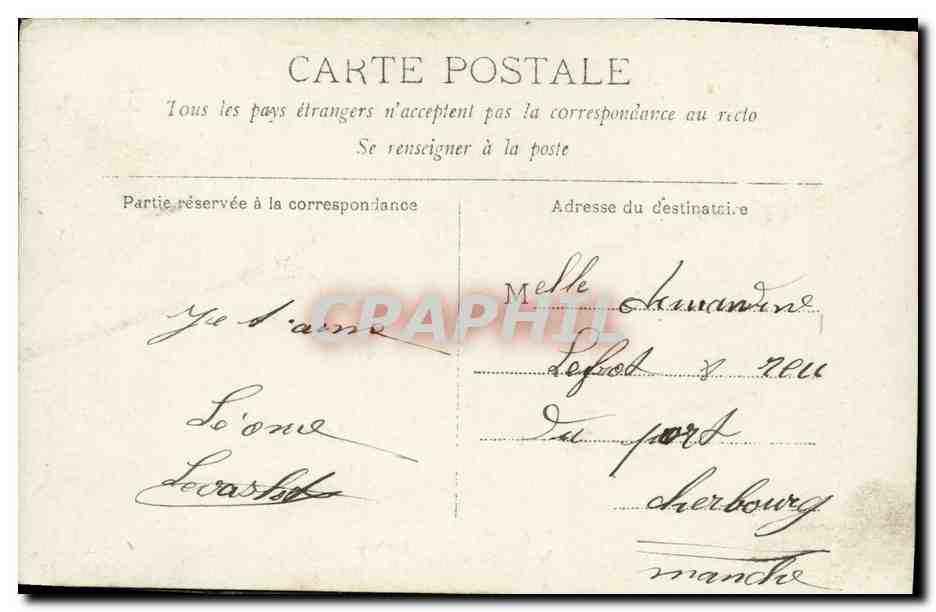 CARTE POSTALE
Tous les pays étrangers n'acceptent pas la correspondance au recto
Se renseigner à la poste
Partie réservée à la correspondance
Adresse du destinataire
Je t'aime
Léone
Melle
Lefrot 8 reu
du port
cherbourg
manche
CPAPHIL